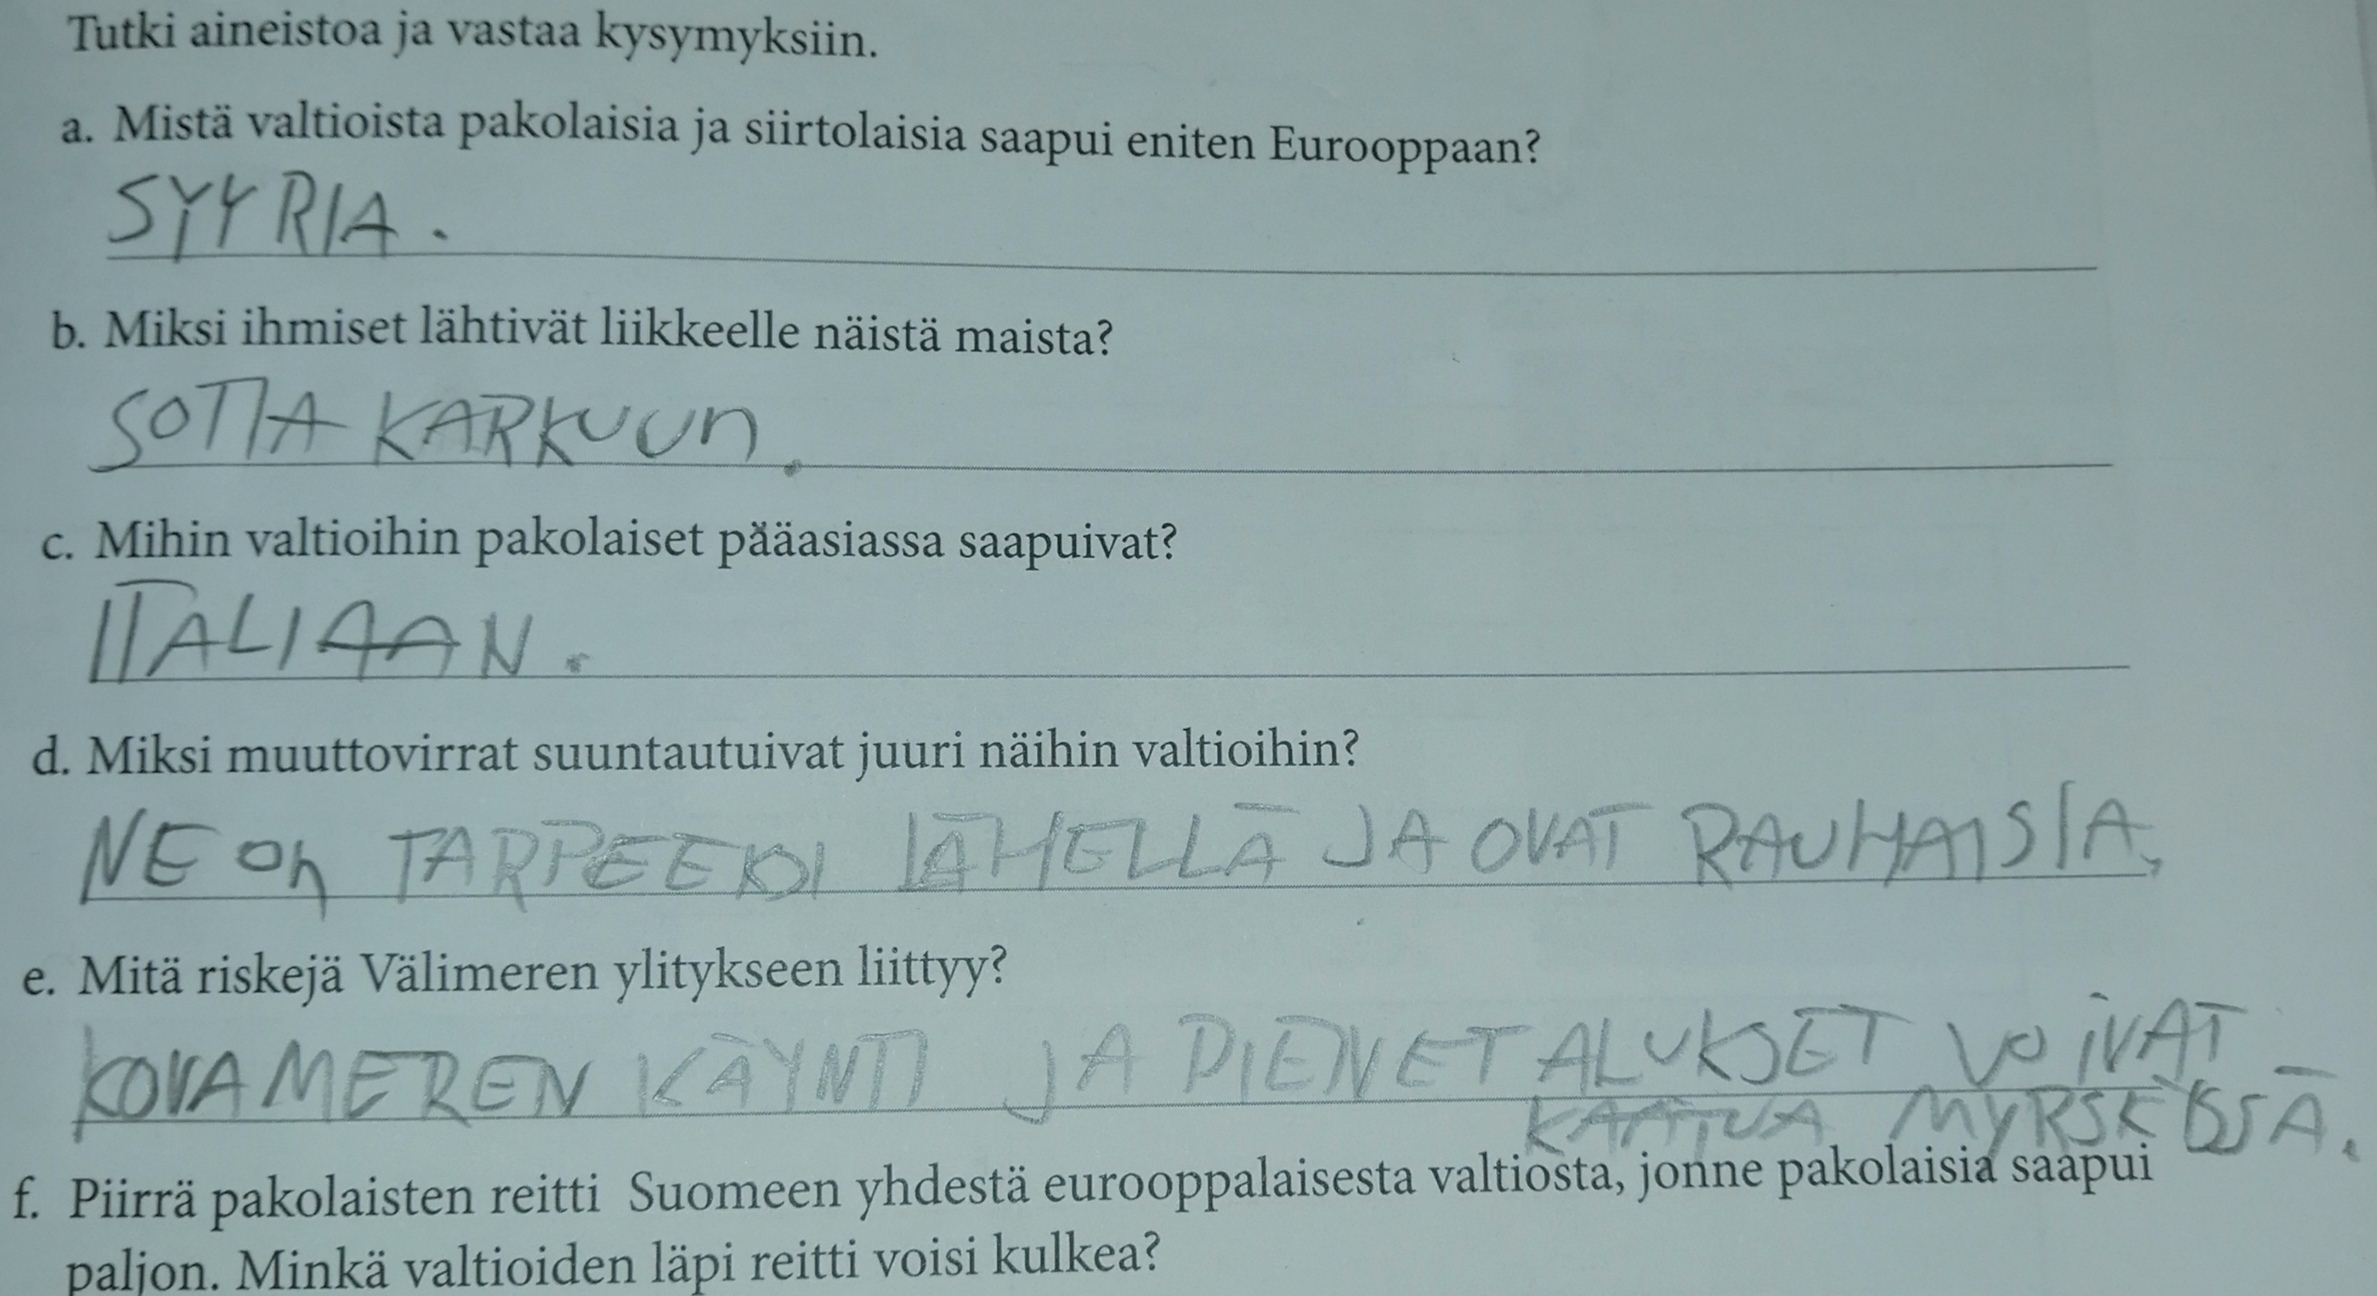 Tutki aineistoa ja vastaa kysymyksiin.
a. Mistä valtioista pakolaisia ja siirtolaisia saapui eniten Eurooppaan?
SYYRIA.
b. Miksi ihmiset lähtivät liikkeelle näistä maista?
SOTIA KARKUUn.
c. Mihin valtioihin pakolaiset pääasiassa saapuivat?
ITALIAAN.
d. Miksi muuttovirrat suuntautuivat juuri näihin valtioihin?
NE On TARPEEKSI LÄHELLÄ JA OVAT RAUHAISIA,
e. Mitä riskejä Välimeren ylitykseen liittyy?
KOVA MEREN KÄYNTI JA PIENET ALUKSET VOIVAT
KAATUA MYRSKYSSÄ.
f. Piirrä pakolaisten reitti Suomeen yhdestä eurooppalaisesta valtiosta, jonne pakolaisia saapui
paljon. Minkä valtioiden läpi reitti voisi kulkea?